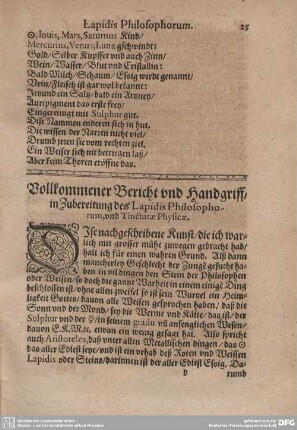 Lapidis Philosophorum. 25
☉, Iouis, Mars, Saturnus Kind/
Mercurius, Venus, Luna gschwindt:
Gold/ Silber Kupffer vnd auch Zinn/
Wein/ Wasser/ Blut vnd Cristallin:
Bald Milch/ Schaum/ Essig wirdt genannt/
Vrin/ Fleisch ist gar wol bekannt:
Jetzund ein Saltz/ bald ein Artzney/
Auripigment das erste frey/
Eingereinigt mit Sulphur gut.
Dise Nammen enderen sich in hut.
Die wissen der Narren nicht viel/
Drumb jrren sie vom rechten ziel.
Ein Weiser sich nit betriegen laß/
Aber kein Thoren eröffne das.
Vollkommener Bericht vnd Handgriff/
in Zubereitung des Lapidis Philosopho-
rum, vnd Tincturæ Physicæ.
DIse nachgeschribene Kunst/ die ich war-
lich mit grosser mühe zuwegen gebracht hab/
halt ich für einen wahren Grund. Als dann
mancherley Geschlecht der Zungē gesucht ha-
ben in vil dingen den Stein der Philosophen
oder Weisen/ so doch die gantz Warheit in einem einige Ding
beschlossen ist. ohne allen zweifel so ist sein Wurtzel ein
ligkeit Gottes/ dauon alle Weisen gesprochen haben/ daß die
Sonn vnd der Mond/ sey die Werme vnd Kälte/ das ist/ der
Sulphur vnd der ☿/ in seinem gradu vñ anfenglichen Wesen/
dauon E.K.Mat. etwan ein wenig gesagt hat. Also spricht
auch Aristoteles, daß vnter allen Metallischen dingen/ das ☉
das aller Edlest seye/ vnd ist ein vrhab deß Roten vnd Weissen
Lapidis oder Steins/ darinnen ist der aller Edlest Essig. Da-
d rumb